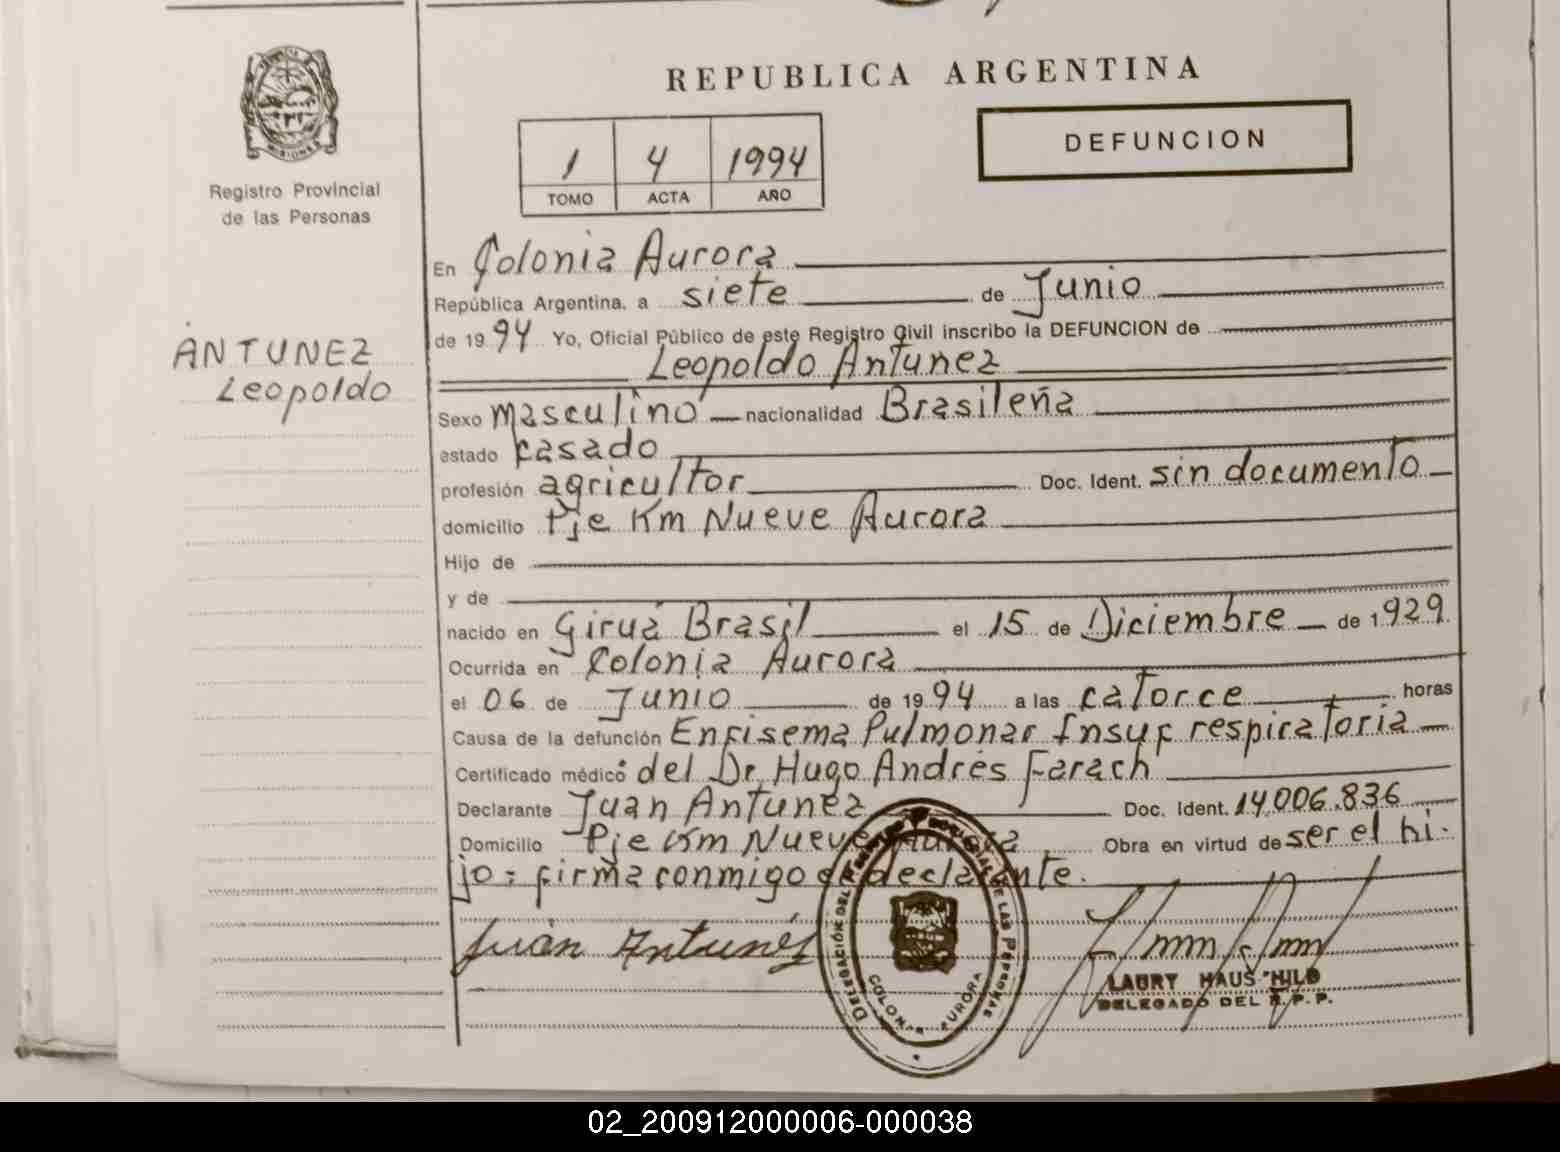 REPUBLICA ARGENTINA
DEFUNCION
MISIONES
Registro Provincial
de las Personas
1 4 1994
TOMO ACTA AÑO
ANTUNEZ
Leopoldo
En Colonia Aurora
República Argentina, a siete de Junio
de 1994 Yo, Oficial Público de este Registro Civil inscribo la DEFUNCION de
Leopoldo Antunez
Sexo masculino nacionalidad Brasileña
estado casado
profesión agricultor Doc. Ident. sin documento
domicilio Pje Km Nueve Aurora
Hijo de
y de
nacido en Giruá Brasil el 15 de Diciembre de 1929
Ocurrida en Colonia Aurora
el 06 de Junio de 1994 a las catorce horas
Causa de la defunción Enfisema Pulmonar Insuf respiratoria
Certificado médico del Dr. Hugo Andrés Farach
Declarante Juan Antunez Doc. Ident. 14.006.836
Domicilio Pje Km Nueve Aurora Obra en virtud de ser el hi-
jo = firma conmigo el declarante.
Juan Antunés
DELEGACIÓN DEL REGISTRO PROVINCIAL DE LAS PERSONAS
COLONIA AURORA
LAURY HAUS HILD
DELEGADO DEL R.P.P.
02_200912000006-000038